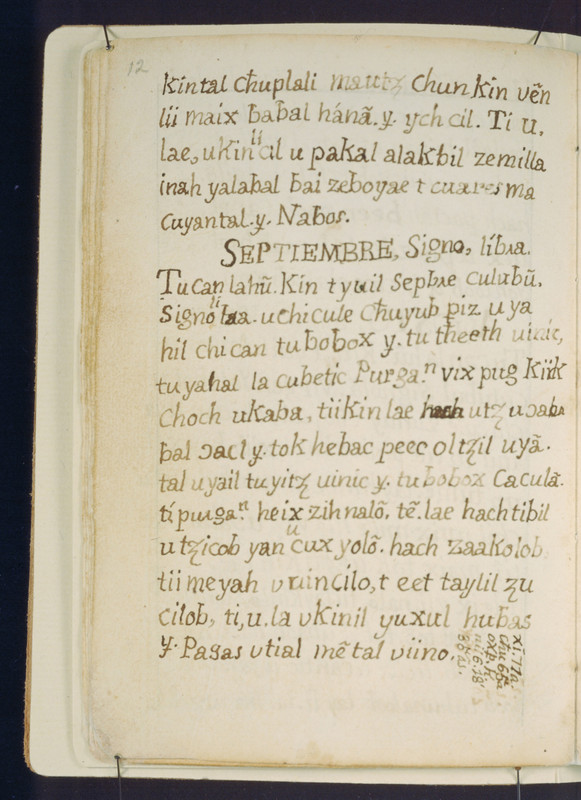 12
Kintal chuplali mautz Chun kin vēn
lii maix babal hánā. y. ych cil. Ti u,
lae, u kin li cil u pakal alakbil zemilla
inah yalabal bai zeboyae t cuaresma
cuyantal. y. Nabos.
SEPTIEMBRE, Signo, libra.
Tucan lahū. Kin t yuil Sepbre culubū.
Signo li bra. u chicule chuyub piz u ya
hil chi can tu bobox y. tu theeth uinic,
tu yahal la cubetic Purga.n vix pug Kiik
choch ukaba, tiikin lae hach utz u ɔaba
bal ɔacl y. tok hebac peec oltzil uyā.
tal u yail tu yitz uinic y. tu bobox Caculā.
ti purga.n heix zihnalō. tē. lae hach tibil
u tzicob yan u cux yolō. hach zaakolob
tii meyah v uincilo, t eet taylil zu
cilob, ti, u. la v kinil yuxul hubas
y. Pasas vtial mētal viino.